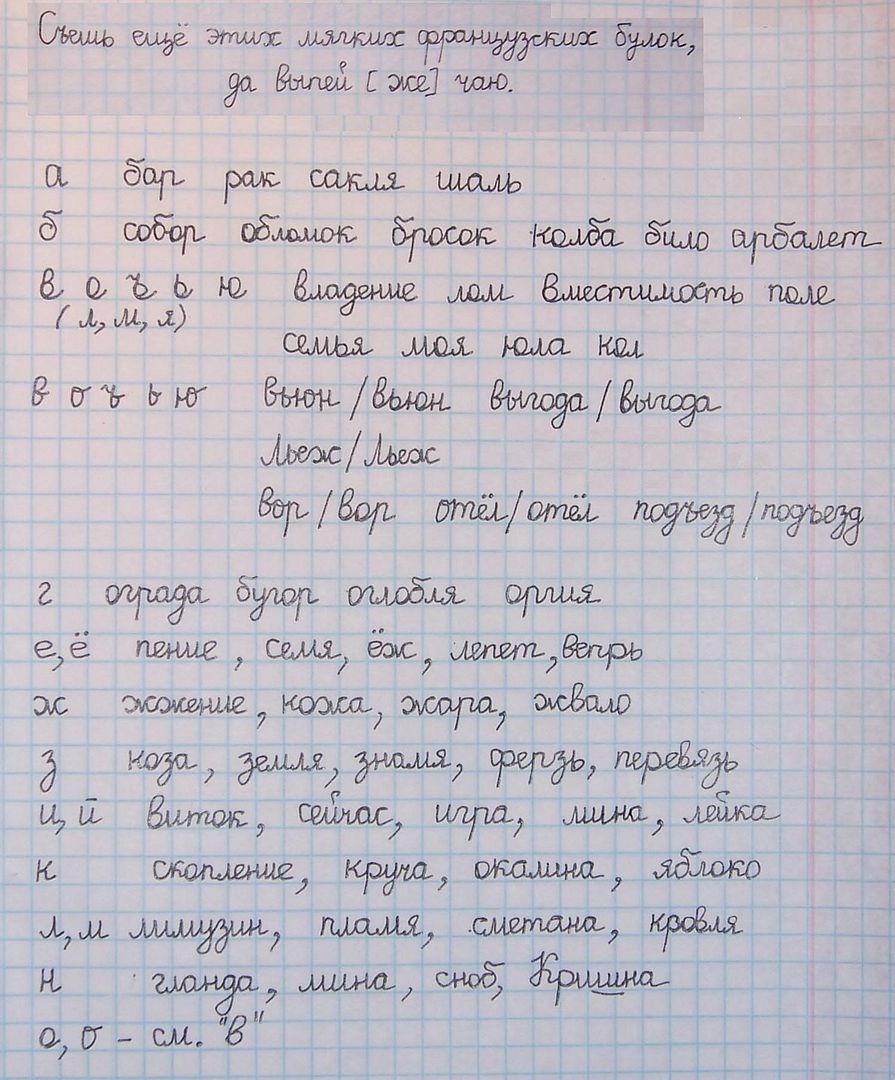 Съешь ещё этих мягких французских булок,
да выпей [же] чаю.
а бар рак сакля шаль
б собор обломок бросок колба било арбалет
в о ъ ь ю владение лом вместимость поле
(л, м, я)
семья моя юла кол
в о ъ ь ю вьюн/вьюн выгода/выгода
Льеж/Льеж
вор/вор отёл/отёл подъезд/подъезд
г ограда бугор оглобля оргия
е, ё пение, семя, ёж, лепет, вепрь
ж жжение, кожа, жара, жвало
з коза, земля, знамя, ферзь, перевязь
и, й виток, сейчас, игра, мина, лейка
к скопление, круча, окалина, яблоко
л, м лимузин, пламя, сметана, кровля
н гланда, мина, сноб, Кришна
о, о - см. "в"